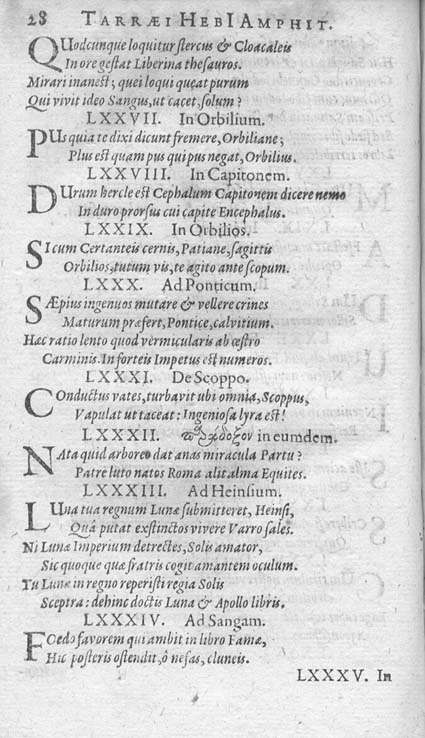 28 TARRÆI HEBI AMPHIT.
QUodcunque loquitur stercus & Cloacaleis
In ore gestat Liberina thesauros.
Mirari inanest; quei loqui queat purum
Qui vivit ideo Sangus, ut cacet, solum?
LXXVII. In Orbilium.
PUs quia te dixi dicunt fremere, Orbiliane;
Plus est quam pus qui pus negat, Orbilius.
LXXVIII. In Capitonem.
DUrum hercle est Cephalum Capitonem dicere nemo
In duro prorsus cui capite Encephalus.
LXXIX. In Orbilios.
SI cum Certanteis cernis, Patiane, sagittis
Orbilios, tutum vis, te agito ante scopum.
LXXX. Ad Ponticum.
SÆpius ingenuos mutare & vellere crines
Maturum præfert, Pontice, calvitium.
Hæc ratio lento quod vermicularis ab œstro
Carminis in forteis Impetus est numeros.
LXXXI. De Scoppo.
COnductus vates, turbavit ubi omnia, Scoppus,
Vapulat ut taceat: Ingeniosa lyra est!
LXXXII. παράδοξον in eumdem.
NAta quid arboreo dat anas miracula Partu?
Patre luto natos Roma alit alma Equites.
LXXXIII. Ad Heinsium.
LUna tua regnum Lunæ submitteret, Heinsi,
Quâ putat exstinctos vivere Varro sales.
Ni Lunæ Imperium detrectes, Solis amator,
Sic quoque quæ fratris cogit amantem oculum.
Tu Lunæ in regno reperisti regia Solis
Sceptra: dehinc doctis Luna & Apollo libris.
LXXXIV. Ad Sangam.
FOedo favorem qui ambit in libro Famæ,
Hic posteris ostendit, ô nefas, cluneis.
LXXXV. In